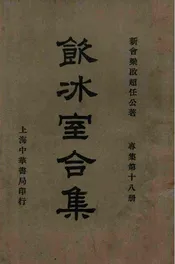 新會梁啟超任公著
專集第十八册
飲冰室合集
上海中華書局印行